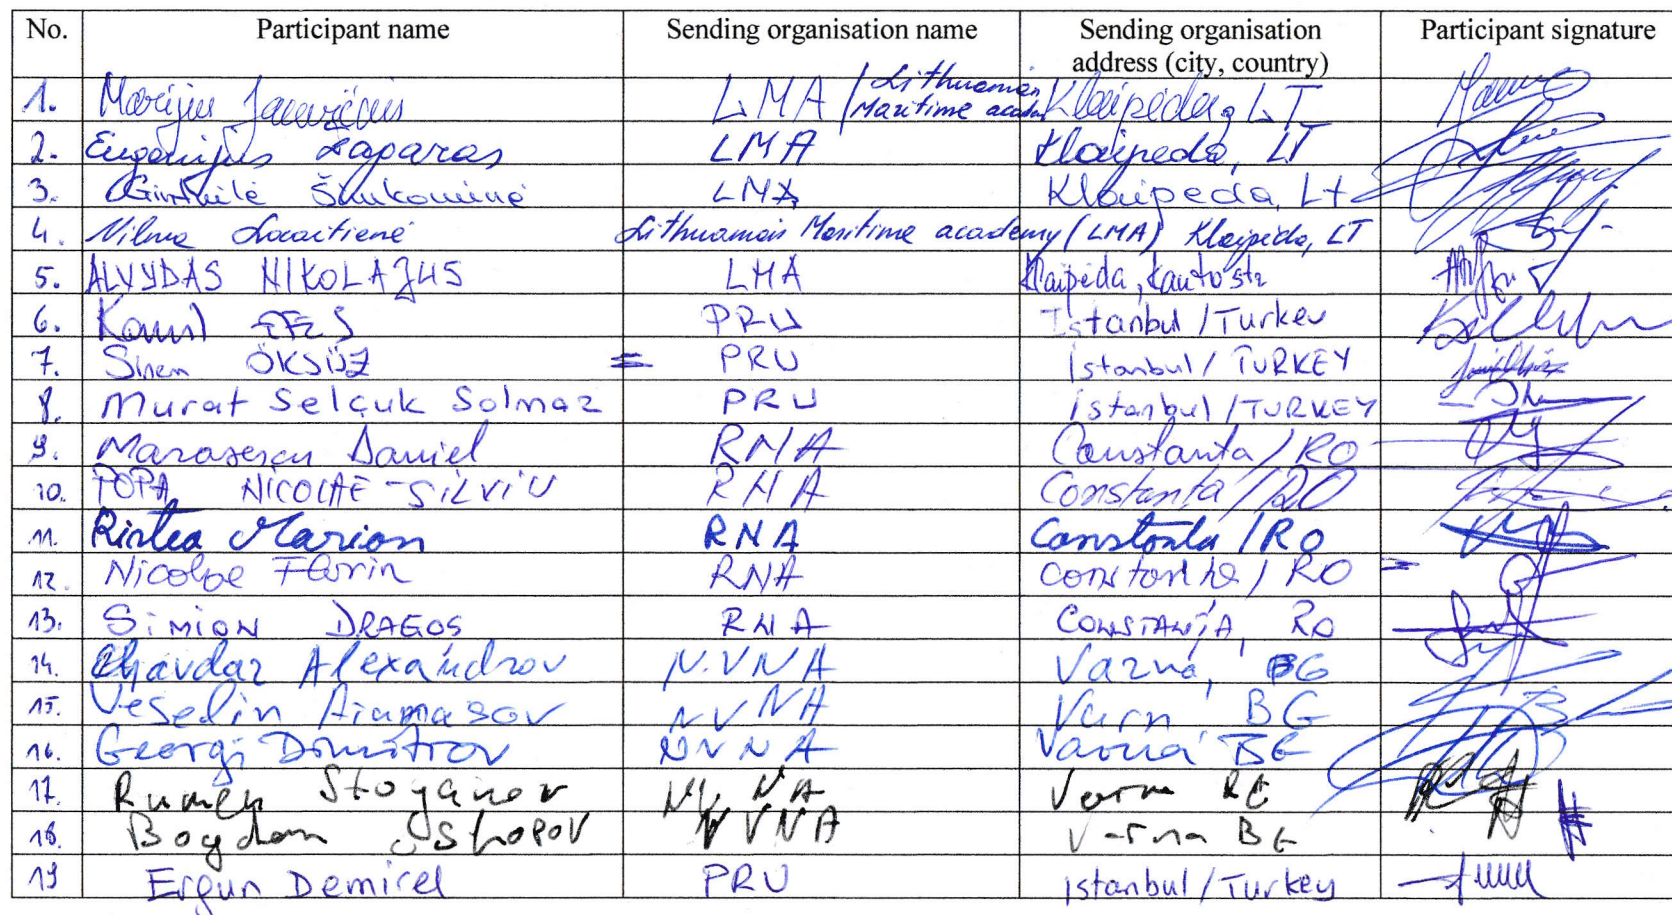 No. Participant name Sending organisation name Sending organisation address (city, country) Participant signature
1. Marijus LMA / Lithuanian Maritime academy Klaipėda, LT
2. Eugenijus Žaparas LMA Klaipeda, LT
3. LMA Klaipeda, Lt
4. Vilma Locaitienė Lithuanian Maritime academy (LMA) Klaipėda, LT
5. ALVYDAS NIKOLAJUS LMA Klaipėda, str
6. PRU Istanbul / Turkey
7. Sinem ÖKSÜZ PRU İstanbul / TURKEY
8. Murat Selçuk Solmaz PRU İstanbul / TURKEY
9. Daniel RNA Constanta / RO
10. POPA NICOLAE-SILVIU RNA Constanta / RO
11. Marian RNA Constanta / RO
12. Nicolae Florin RNA Constanta / RO
13. SIMION DRAGOS RNA CONSTANȚA, RO
14. Chavdar Alexandrov N.VNA Varna, BG
15. Veselin NVNA Varn BG
16. Georgi Dimitrov NVNA Varna BG
17. Rumen Stoyanov NVNA Varna BG
18. Bogdan NVNA Varna BG
19 Ergun Demirel PRU Istanbul / Turkey